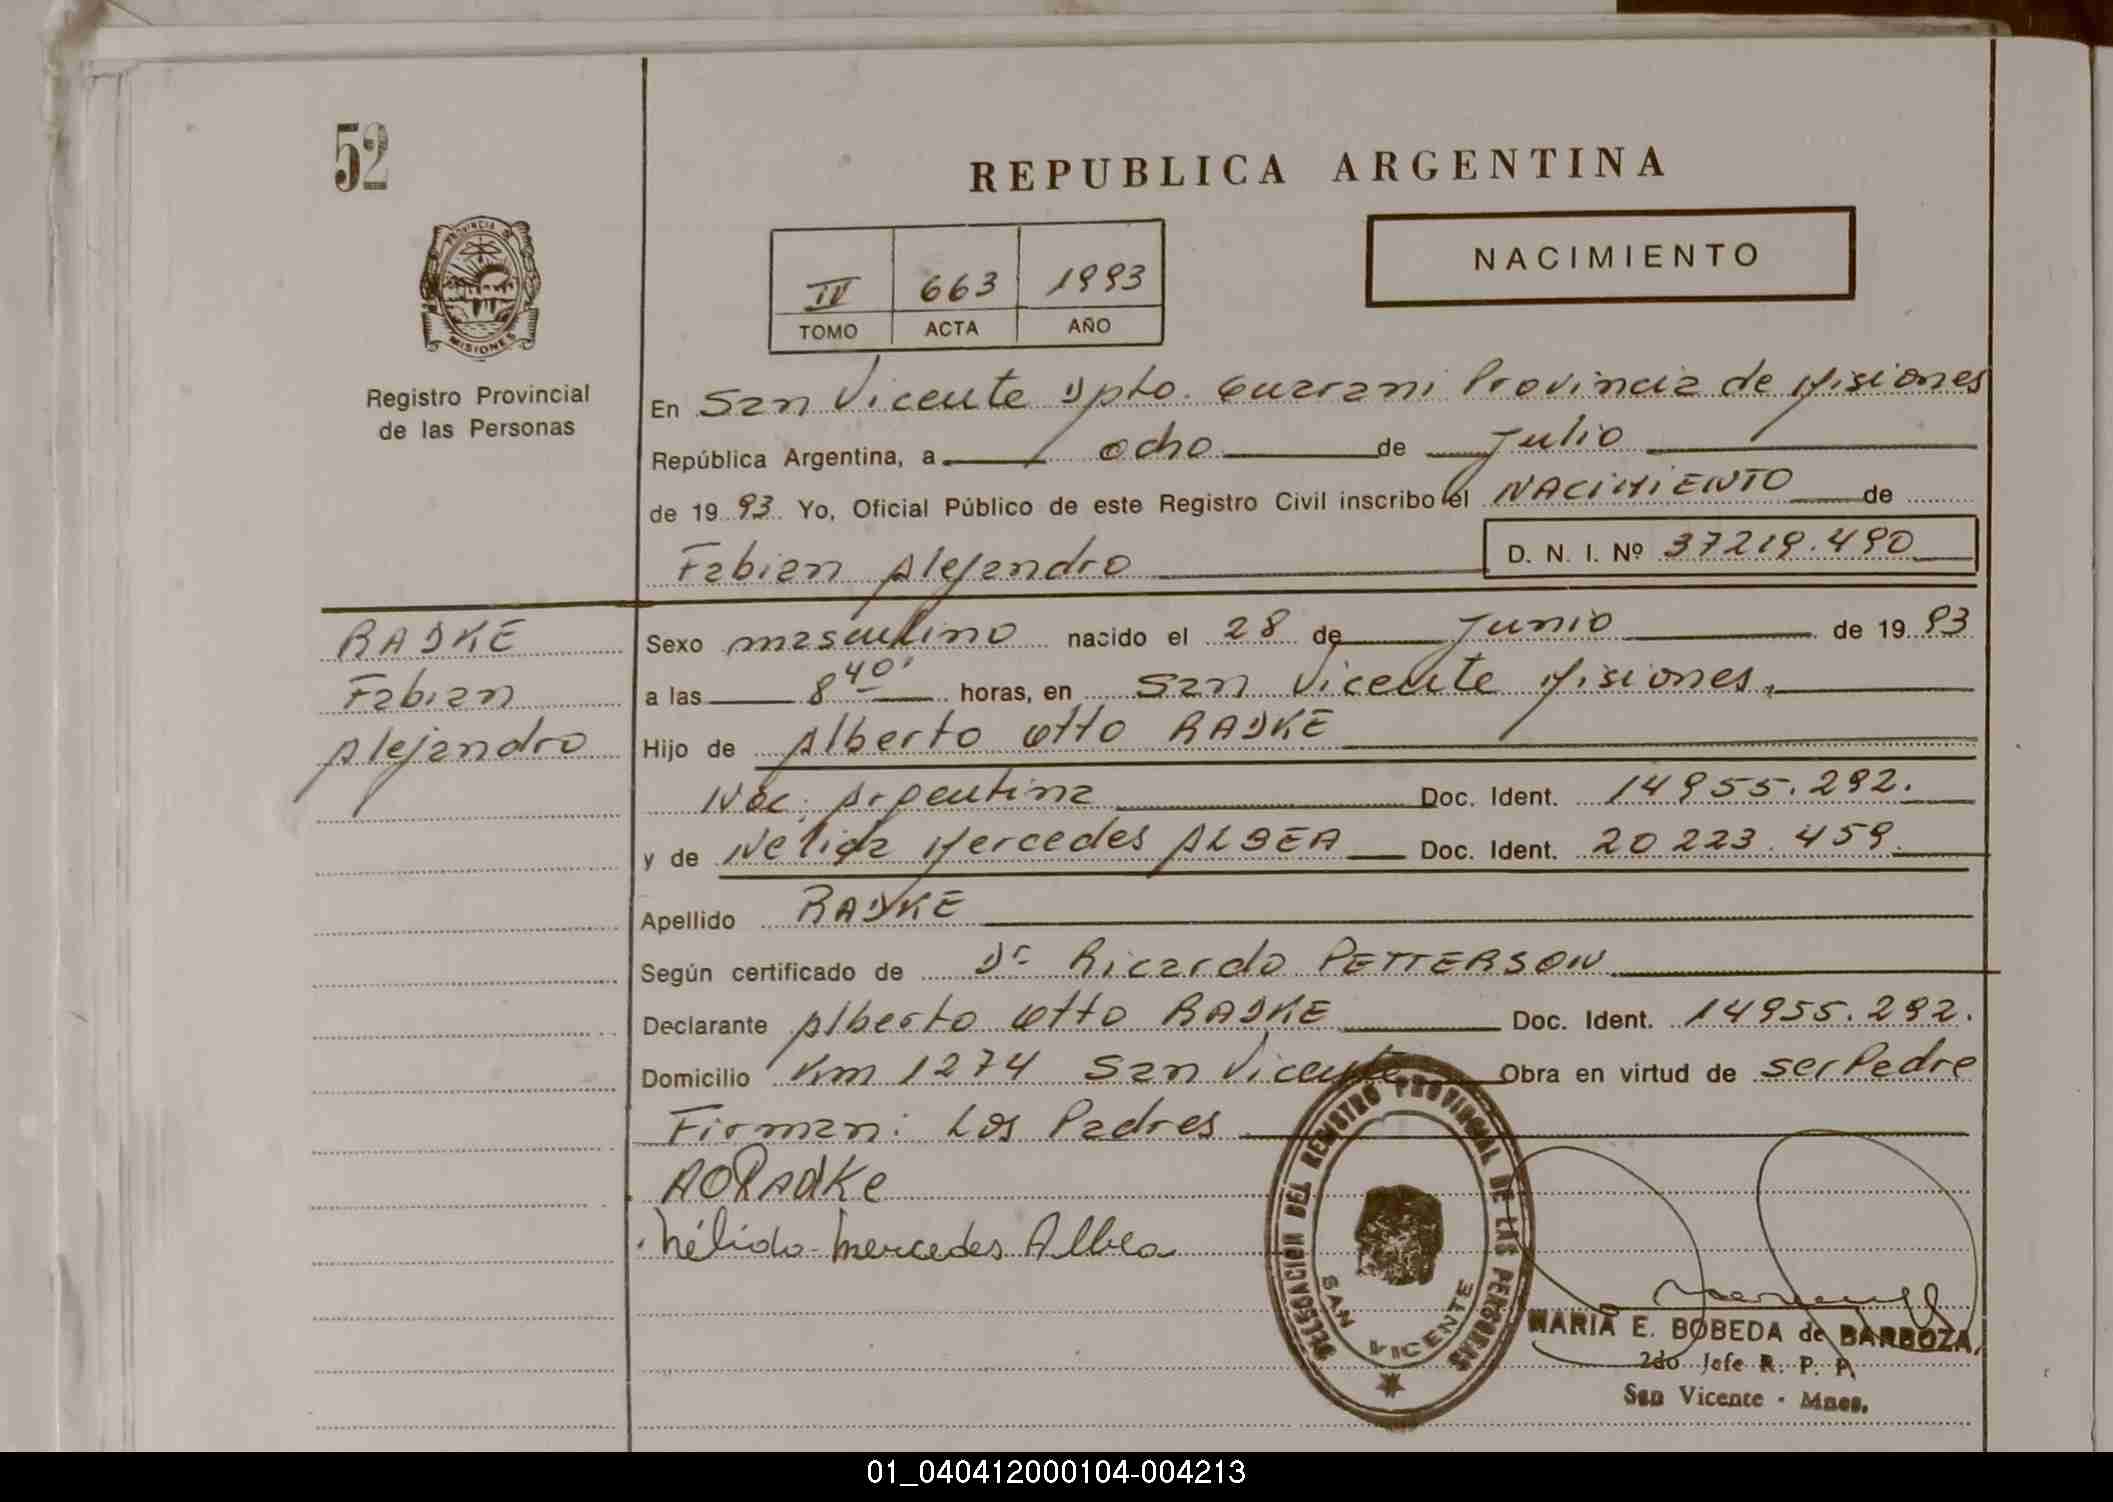 52
REPUBLICA ARGENTINA
PROVINCIA D
MISIONES
NACIMIENTO
IV 663 1993
TOMO ACTA AÑO
Registro Provincial
de las Personas
En San Vicente Dpto. Guarani Provincia de Misiones
República Argentina, a ocho de Julio
de 19 93 Yo, Oficial Público de este Registro Civil inscribo el NACIMIENTO de
Fabian Alejandro D. N. I. Nº 37219.490
RADKE
Fabian
Alejandro
Sexo masculino nacido el 28 de Junio de 19 93
a las 8 40' horas, en San Vicente Misiones.
Hijo de Alberto Otto RADKE
Nac. Argentina Doc. Ident. 14955.292.
y de Nelida Mercedes ALBEA Doc. Ident. 20 223.459.
Apellido RADKE
Según certificado de Dr Ricardo PETTERSON
Declarante Alberto Otto RADKE Doc. Ident. 14955.292.
Domicilio Km 1274 San Vicente Obra en virtud de ser Padre
Firman: Los Padres
AORAdKe
Nélida Mercedes Albea
DELEGACION DEL REGISTRO PROVINCIAL DE LAS PERSONAS
SAN VICENTE
MARIA E. BOBEDA de BARBOZA
2do Jefe R. P. P.
San Vicente - Mnes.
01_040412000104-004213